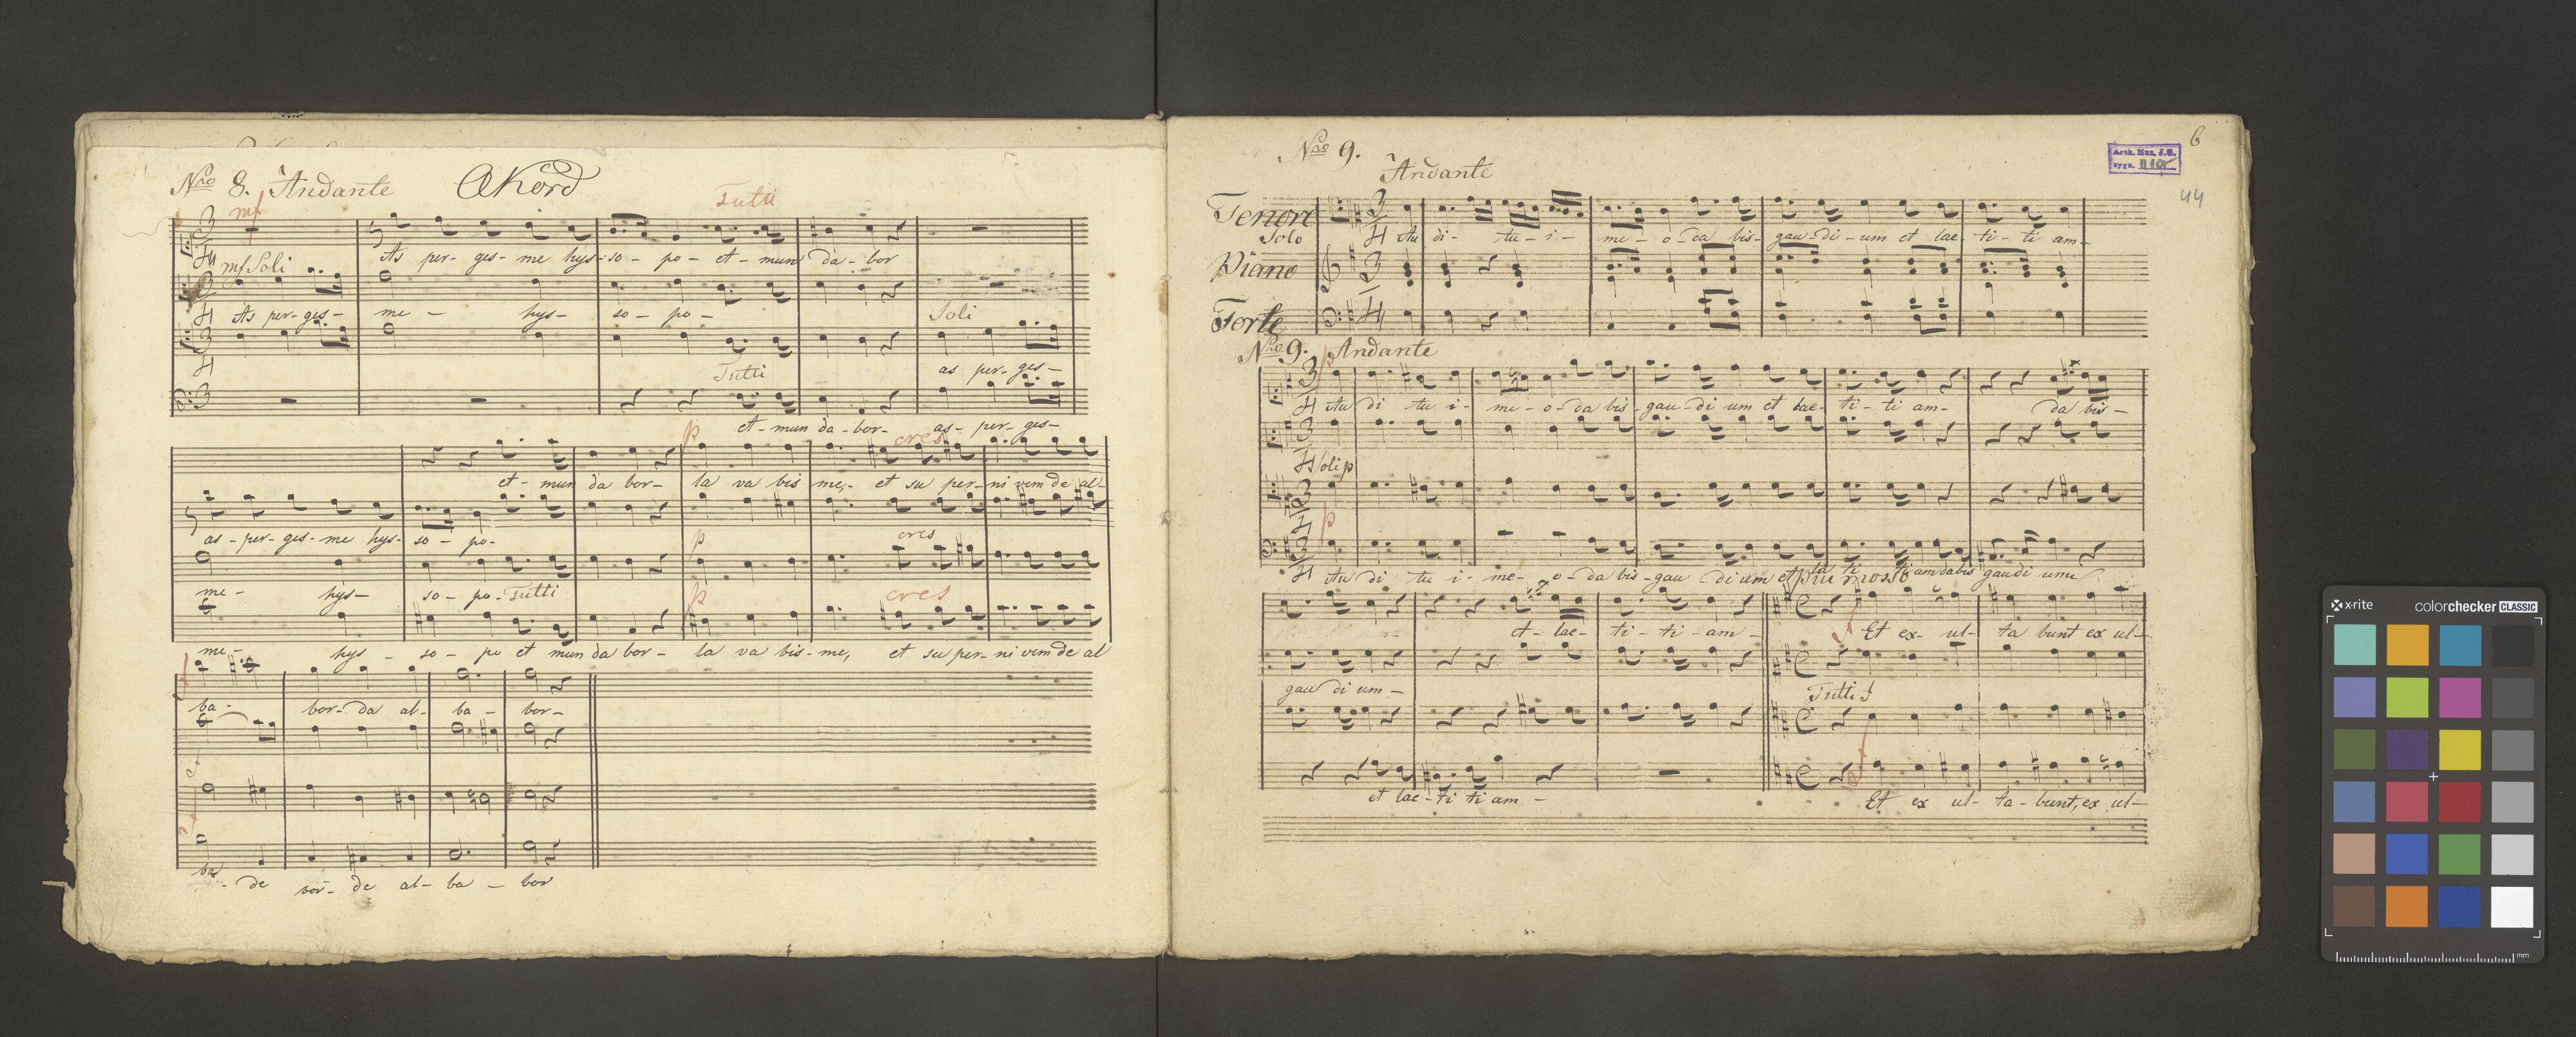 Nro 8. Andante Akord
mf Tutti
As per- ges- me hys- so- po- et- mun da- bor
mf Soli
As per- ges- me - hys- so- po- Soli
Tutti as per- ges-
et- mun da- bor- as- per- ges-
p cres
et- mun da bor- la va bis me,- et su per- ni vem de al-
as- per- ges- me hys- so- po- p cres
me- hys- so- po- Tutti p cres
me- hys- so- po et mun da bor- la va bis- me, et su per- ni vem de al
f
ba- bor- da al- ba- bor-
f
f
ba- de bor- de al- ba- bor
6
Nro 9.
Andante
Arch. Muz. J. G.
sygn.
44
Tenore
Solo
Au di- tu- i- me- o- da bis- gau- di- um et lae- ti- ti am-
Piano
Forte
Nro 9. Andante
p
Au di tu i- me- o- da bis- gau- di um et lae- ti- ti am- da bis-
Soli p
p
Au di tu i- me- o- da bis- gau di um et lae ti ti am da bis gau di um
piu mosso
et- lae- ti- ti- am- f Et ex- ul- ta bunt ex ul-
gau di um- Tutti f
f
et lae- ti ti am- Et ex ul- ta- bunt, ex ul-
x-rite colorchecker CLASSIC
mm